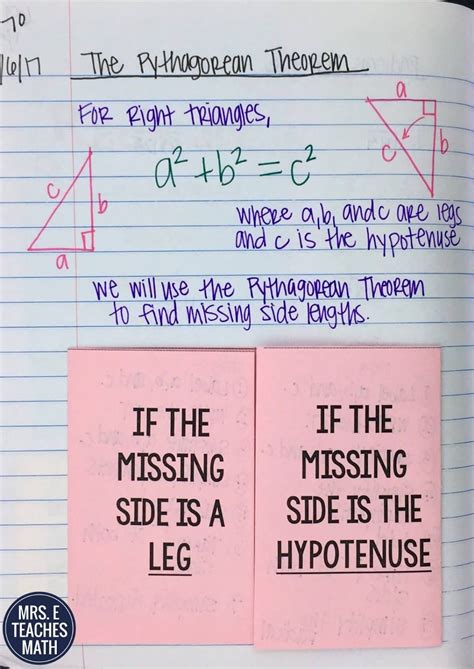 70
/6/17 The Pythagorean Theorem
For Right Triangles,
a² + b² = c²
a
b
c
c
b
a
where a, b, and c are legs
and c is the hypotenuse
we will use the Pythagorean Theorem
to find missing side lengths.
IF THE
MISSING
SIDE IS A
LEG
IF THE
MISSING
SIDE IS THE
HYPOTENUSE
MRS. E
TEACHES
MATH